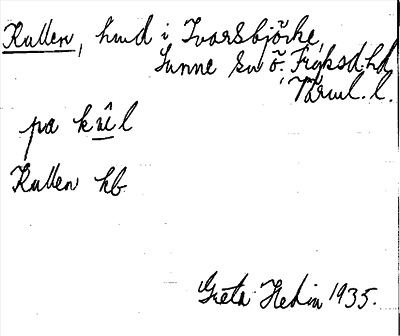 Kullen, hmd i Ivarsbjörke,
Sunne sn Ö. Fryksd. hd,
Värml. l.
pa kul
Kullen kb
Greta Hedin 1935.